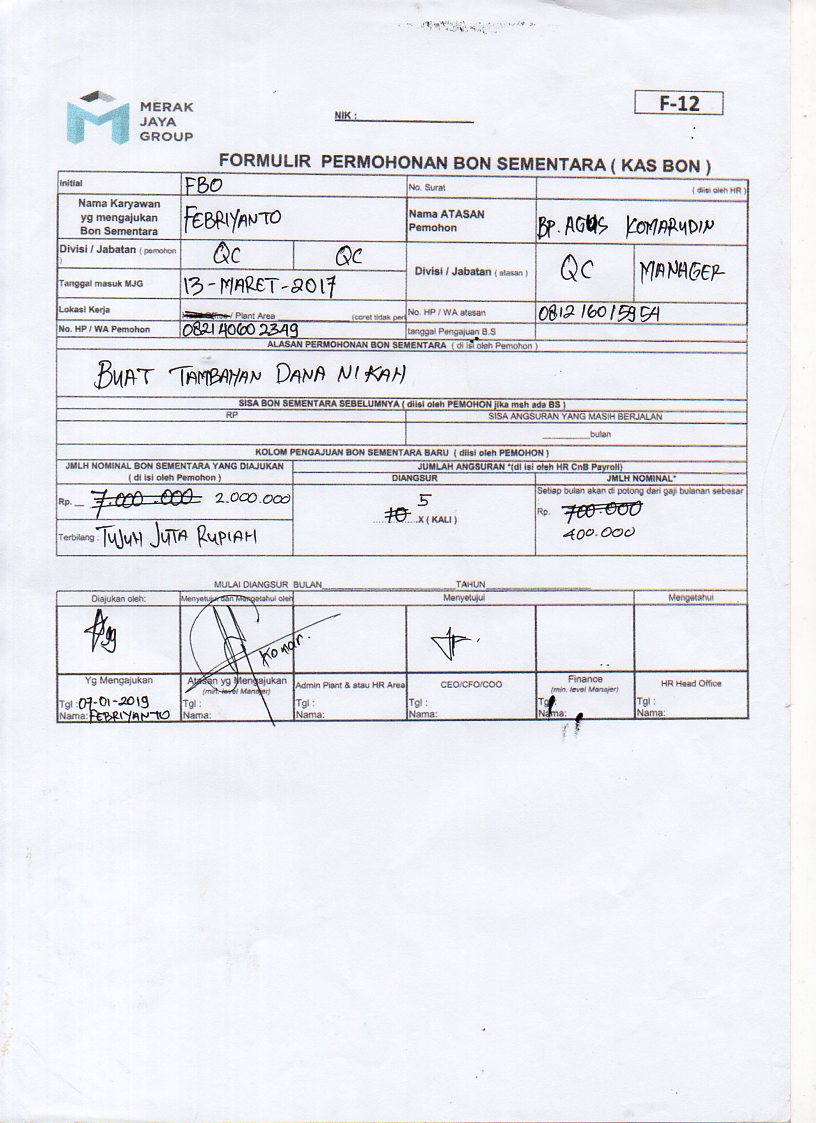 MERAK
JAYA
GROUP
NIK :
F-12
FORMULIR PERMOHONAN BON SEMENTARA ( KAS BON )
Initial FBO No. Surat ( diisi oleh HR )
Nama Karyawan
yg mengajukan
Bon Sementara
FEBRIYANTO
Nama ATASAN
Pemohon
BP. AGUS KOMARUDIN
Divisi / Jabatan ( pemohon )
QC QC
Divisi / Jabatan ( atasan )
QC MANAGER
Tanggal masuk MJG 13 - MARET - 2017
Lokasi Kerja Head Office / Plant Area (coret tidak perl
No. HP / WA atasan 081216015954
No. HP / WA Pemohon 082140602349 tanggal Pengajuan B.S
ALASAN PERMOHONAN BON SEMENTARA ( di isi oleh Pemohon )
BUAT TAMBAHAN DANA NIKAH
SISA BON SEMENTARA SEBELUMNYA ( diisi oleh PEMOHON jika msh ada BS )
RP SISA ANGSURAN YANG MASIH BERJALAN
bulan
KOLOM PENGAJUAN BON SEMENTARA BARU ( diisi oleh PEMOHON )
JMLH NOMINAL BON SEMENTARA YANG DIAJUKAN
( di isi oleh Pemohon )
JUMLAH ANGSURAN *(di isi oleh HR CnB Payroll)
DIANGSUR JMLH NOMINAL*
Rp. 7.000.000 2.000.000
5
10 X ( KALI )
Setiap bulan akan di potong dari gaji bulanan sebesar
Rp. 700.000
400.000
Terbilang : TUJUH JUTA RUPIAH
MULAI DIANGSUR BULAN TAHUN
Diajukan oleh: Menyetujui dan Mengetahui oleh Menyetujui Mengetahui
Komar.
Yg Mengajukan
Atasan yg Mengajukan
(min. level Manajer)
Admin Plant & atau HR Area
CEO/CFO/COO
Finance
(min. level Manajer)
HR Head Office
Tgl : 07-01-2019 Tgl : Tgl : Tgl : Tgl : Tgl :
Nama: FEBRIYANTO Nama: Nama: Nama: Nama: Nama: